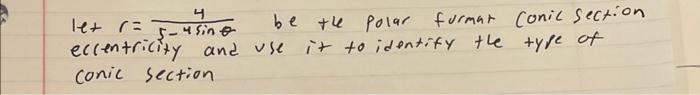 let r = 4 / 5 - 4 sin θ be the Polar format Conic section
eccentricity and use it to identify the type of
conic section